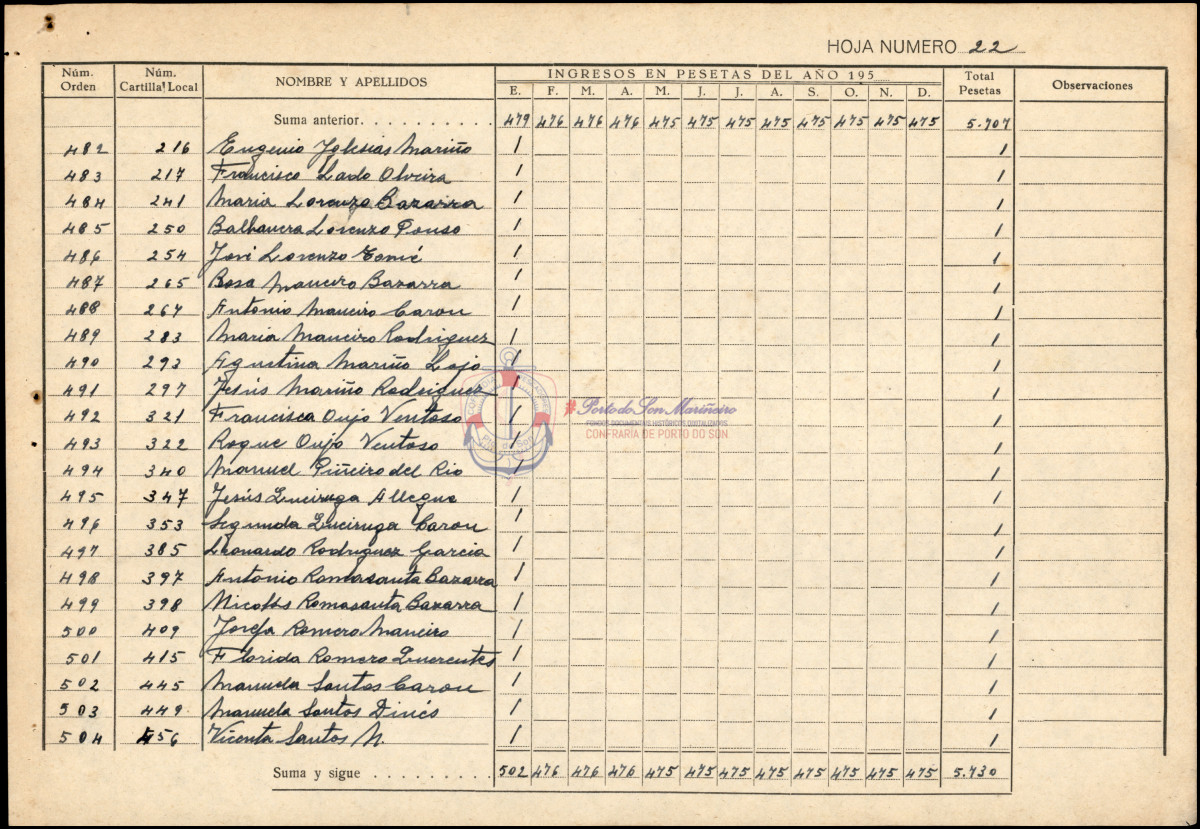 HOJA NUMERO 22
Núm. Orden Núm. Cartilla Local NOMBRE Y APELLIDOS INGRESOS EN PESETAS DEL AÑO 195 Total Pesetas Observaciones
E. F. M. A. M. J. J. A. S. O. N. D.
Suma anterior. 479 476 476 476 475 475 475 475 475 475 475 475 5.707
482 216 Eugenio Yglesias Mariño 1 1
483 217 Francisco Lado Olveira 1 1
484 241 Maria Lorenzo Bazarra 1 1
485 250 Lorenzo 1 1
486 254 José Lorenzo 1 1
487 265 Rosa Maneiro Bazarra 1 1
488 267 Antonio Maneiro Carou 1 1
489 283 Maria Maneiro Rodriguez 1 1
490 293 Agustina Mariño Lojo 1 1
491 297 Jesús Mariño Rodriguez 1 1
492 321 Francisca Oujo Ventoso 1 1
493 322 Roque Oujo Ventoso 1 1
494 340 Manuel Piñeiro del Rio 1 1
495 347 Jesús 1 1
496 353 Segunda Carou 1 1
497 385 Leonardo Rodriguez Garcia 1 1
498 397 Antonio Romasanta Bazarra 1 1
499 398 Nicolás Romasanta Bazarra 1 1
500 409 Josefa Romero Maneiro 1 1
501 415 Florida Romero 1 1
502 445 Manuela Santos Carou 1 1
503 449 Manuela Santos 1 1
504 456 Vicenta Santos N. 1 1
Suma y sigue 502 476 476 476 475 475 475 475 475 475 475 475 5.730
#Porto do Son Mariñeiro
FONDOS DOCUMENTAIS HISTÓRICOS DIXITALIZADOS
CONFRARÍA DE PORTO DO SON